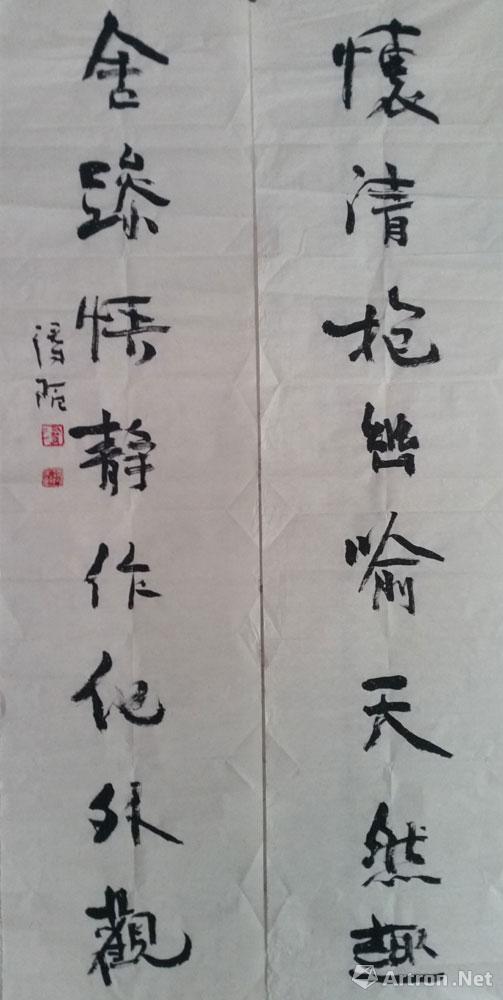 懷清抱幽喻天然趣
舍躁悟靜作化外觀
Artron.Net